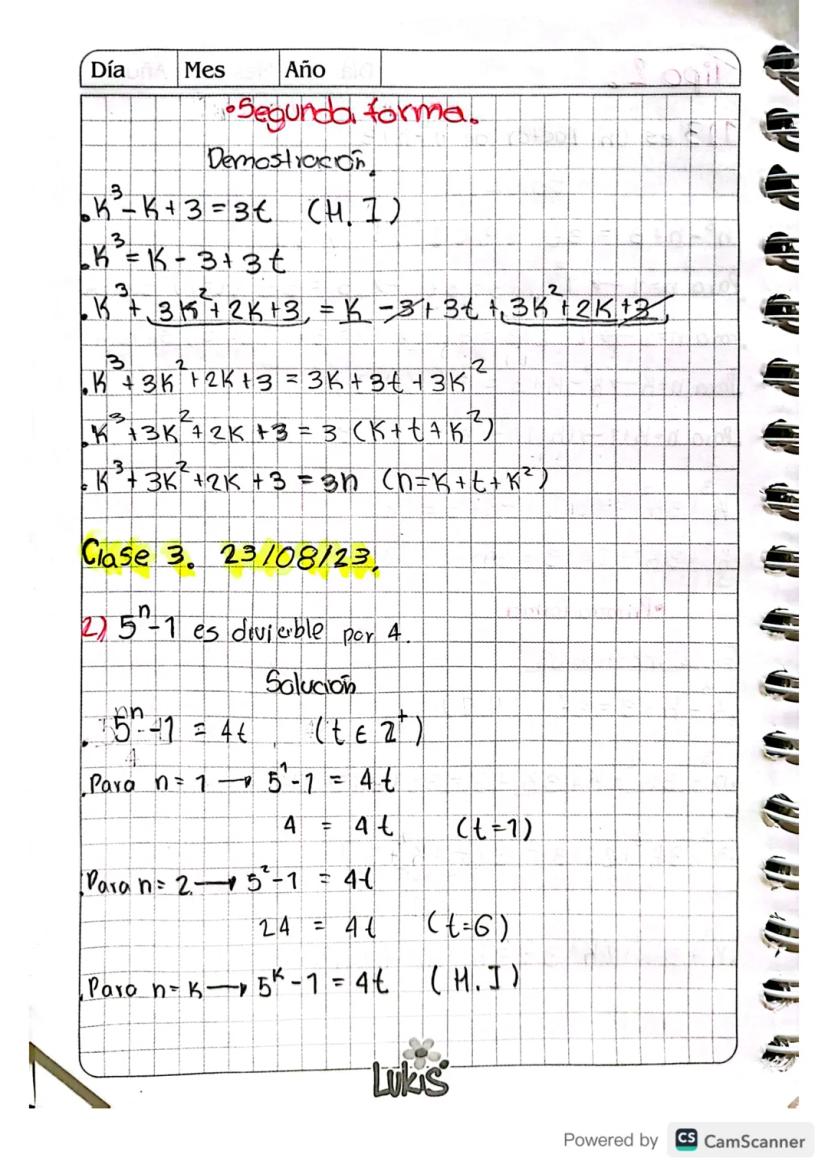 Día Mes Año
•Segunda forma.
Demostración.
.K³-K+3=3t (H.I)
.K³=K-3+3t
.K³+3K²+2K+3=K-3+3t+3K²+2K+3
.K³+3K²+2K+3=3K+3t+3K²
.K³+3K²+2K+3=3(K+t+K²)
.K³+3K²+2K+3=3n (n=K+t+K²)
Clase 3. 23/08/23.
2) 5ⁿ-1 es por 4.
Solución
. 5ⁿ-1 = 4t (t ∈ Z⁺)
.Para n=1 → 5¹-1 = 4t
4 = 4t (t=1)
.Para n=2 → 5²-1 = 4t
24 = 4t (t=6)
.Para n=K → 5ᴷ-1 = 4t (H.I)
LUKIS
Powered by CS CamScanner